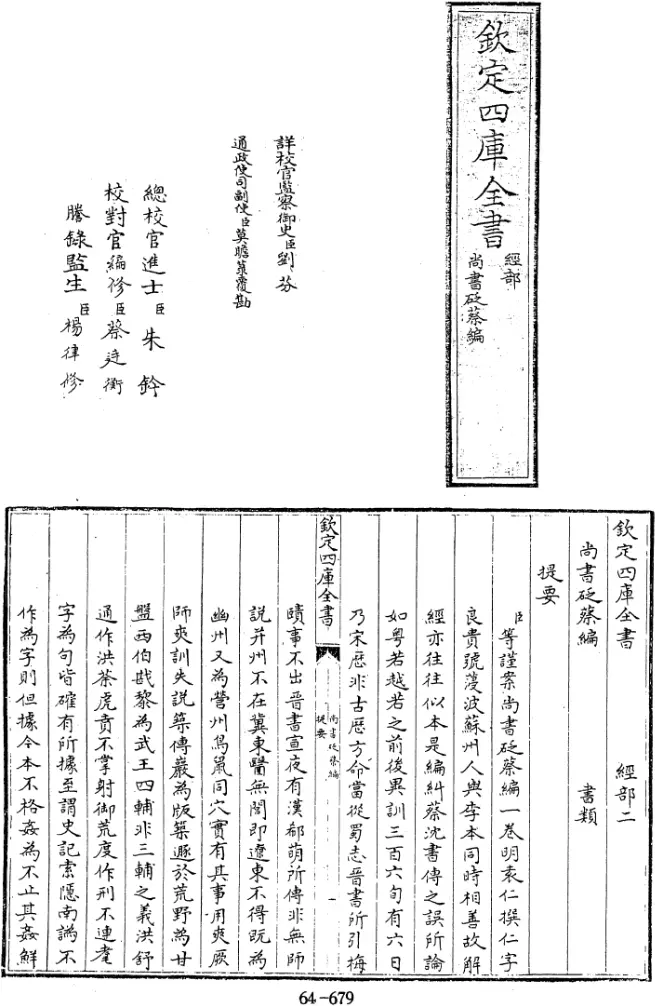 欽定四庫全書
經部
尚書砭蔡編
詳校官監察御史臣劉芬
通政使司副使臣莫瞻菉覆勘
總校官進士臣朱鈐
校對官編修臣蔡廷衡
謄錄監生臣楊律修
欽定四庫全書 經部二
尚書砭蔡編 書類
提要
臣等謹案尚書砭蔡編一卷明袁仁撰仁字
良貴號蓡波蘇州人與季本同時相善故解
經亦往往似本是編糾蔡沈書傳之誤所論
如粵若越若之前後異訓三百六旬有六日
乃宋厯非古厯方命當從蜀志晉書所引梅
欽定四庫全書
尚書砭蔡編
提要
一
賾事不出晉書宣夜有漢郗萌所傳非無師
說并州不在冀東醫無閭即遼東不得既為
幽州又為營州鳥鼠同穴實有其事用爽厥
師爽訓失說築傳巖為版築遯於荒野為甘
盤西伯戡黎為武王四輔非三輔之義洪舒
通作洪荼虎賁不掌射御荒度作刑不連耄
字為句皆確有所據至謂史記索隱南譌不
作為字則但據今本不格姦為不止其姦鮮
64-679